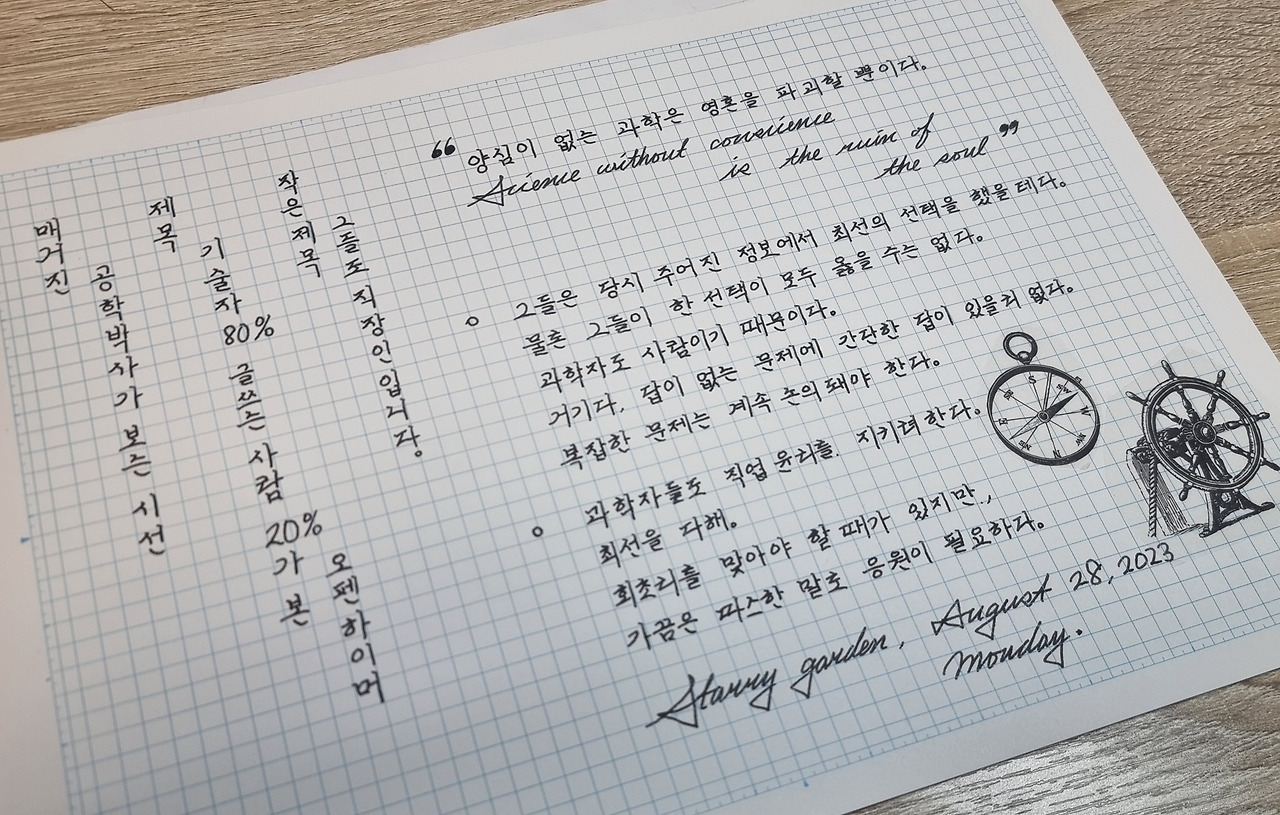 매거진
공학박사가 보는 시선
제목
기술자 80% 글쓰는 사람 20%가 본
오펜하이머
작은 제목
그들도 직장인입니다.
“ 양심이 없는 과학은 영혼을 파괴할 뿐이다.
Science without conscience
is the ruin of
the soul ”
그들은 당시 주어진 정보에서 최선의 선택을 했을테다.
물론 그들이 한 선택이 모두 옳을 수는 없다.
과학자도 사람이기 때문이다.
거기다, 답이 없는 문제에 간단한 답이 있을리 없다.
복잡한 문제는 계속 논의돼야 한다.
과학자들도 직업윤리를 지키려한다.
최선을 다해.
회초리를 맞아야 할 때가 있지만,
가끔은 따스한 말로 응원이 필요하다.
Starry garden, August 28, 2023
Monday.